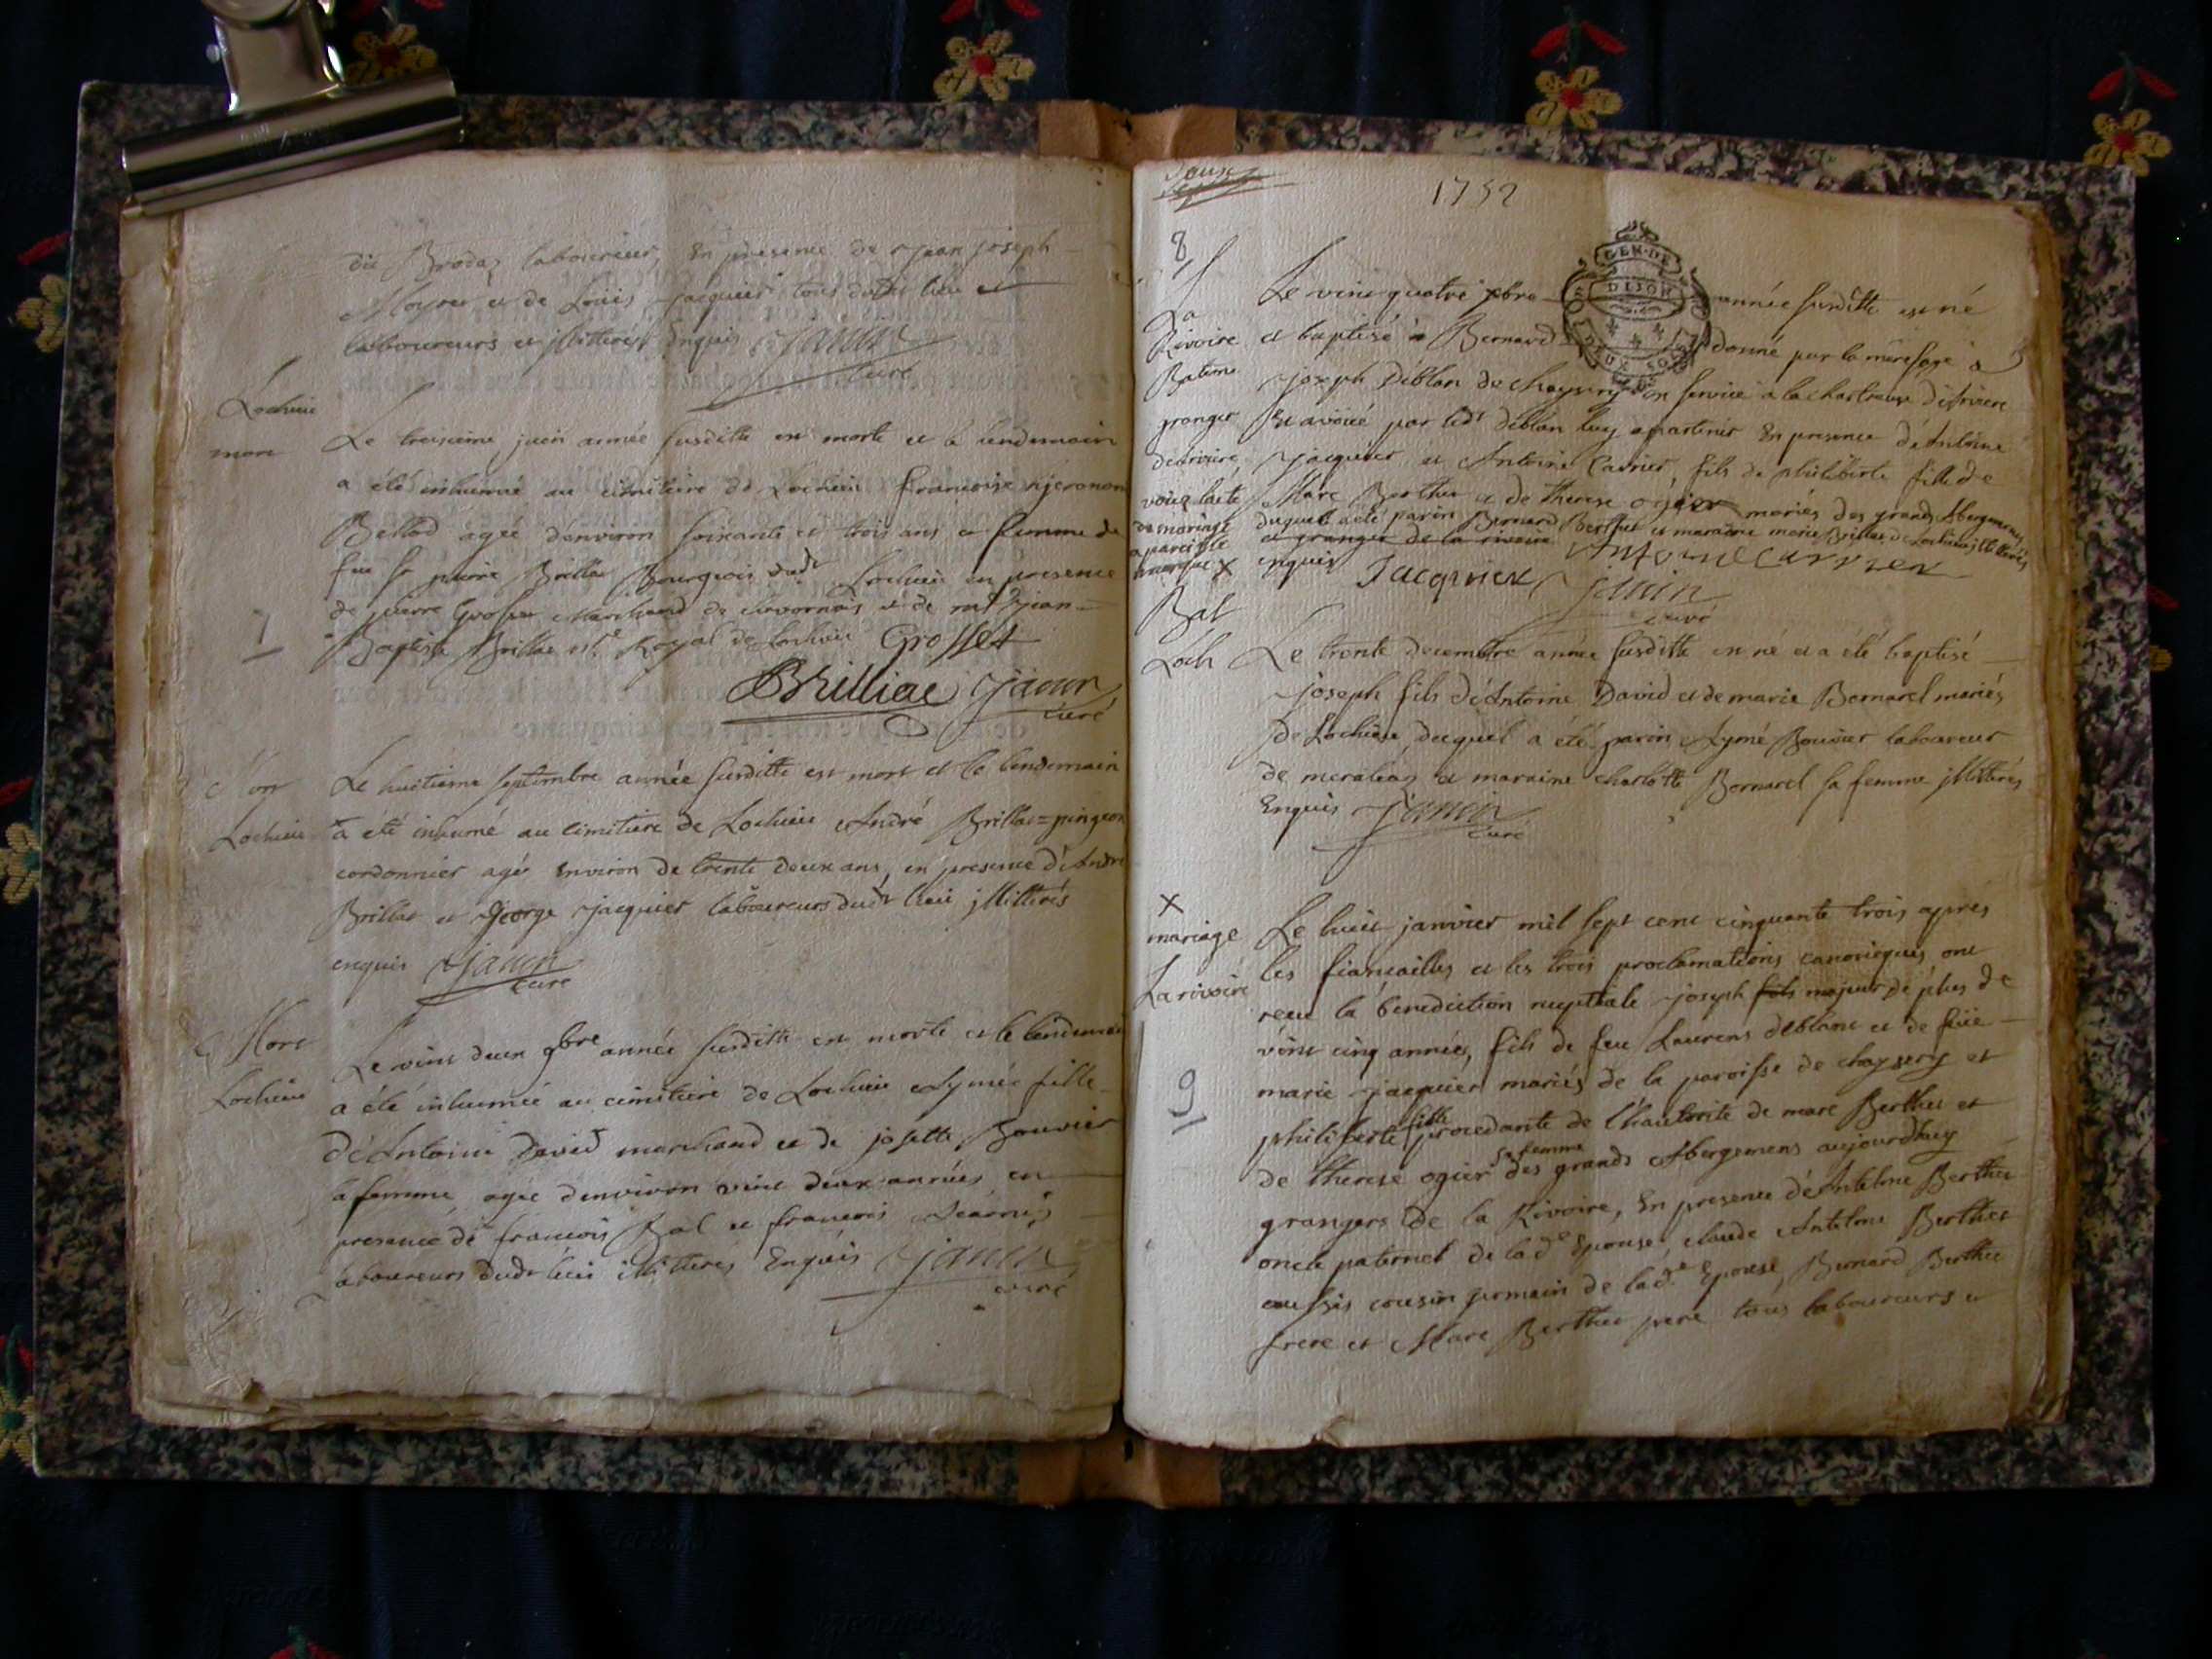 dit Brodaz laboureur, En presence de Jean joseph
Moyret et de Loüis Jacquier tous dudt lieu et
laboureurs et jllitterés Enquis Janin
curé
Lochieu
mort
Le troisieme juin année susditte est morte et le lendemain
a été inhumé au cimitiere de Lochieu francoise hjeronon
Bellod agée denviron soixante et trois ans femme de
feu sr pierre Brillat Bourgeois dudt Lochieu en presence
de pierre Grosset Marchand de chavornais et de mr Jean
Baptiste Brillat Royal de Lochieu Grosset
7
Brilliac Janin
curé
Mort
Lochieu
Le huitieme septembre année susditte est mort et le lendemain
a eté inhumé au cimitiere de Lochieu André Brillat=pingeon
cordonnier agé Environ de trente deux ans, en presence d'André
Brillat et George Jacquier laboureurs dudt lieu jllitterés
enquis Janin
curé
Mort
Lochieu
Le vint deux 9bre année susditte est morte et le lendemain
a été inhumée au cimitiere de Lochieu Aymée fille
d'Antoine David marchand et de josette Bouvier
sa femme, agée denviron vint deux années en
presence de francois Bal et francois
laboureurs dudt lieu illitterés Enquis Janin
curé
1752
8
La
Rivoire
Batème
granger
d'Arviere
voiez lacte
de mariage
a pareille
marque x
Le vint quatre xbre année susditte est né
GEN·DE
DIJON
DEUX SOLS
et baptisé Bernard donné par la mere sage a
joseph Déblan de chaysery en service a la chartreuse d'Arviere
Et avoüé par ledt déblan luy apartenir En presence d'Antoine
Jacquier et Antoine Carrier, fils de philiberte fille de
Marc Berthet et de therese ogier mariés des grands Abergemens
duquel a été parin Bernard Berthet et maraine marie Brillat de Lochieu jllitterés
et granger de la rivoire
enquis Jacquier Antoine Carrier
Janin
curé
Bat
Loch
Le trente decembre année susditte est né et a été baptisé
joseph fils d'Antoine David et de marie Bernarel mariés
de Lochieu, duquel a été parin Aymé Bouvier laboureur
de meraleaz et maraine charlotte Bernarel sa femme jllitterés
Enquis Janin
curé
x
mariage
La rivoire
9
Le huit janvier mil sept cent cinquante trois après
les fiancailles et les trois proclamations canoniques ont
receu la benediction nuptiale joseph fils majeur de plus de
vint cinq années, fils de feu Laurens deblanc et de füe
marie Jacquier mariés de la paroisse de chaysery et
philiberte fille procedante de l'hautorite de marc Berthet et
de therese ogier sa femme des grands Abergemens aujourdhuy
grangers de la Rivoire, En presence d'Antelme Berthet
oncle paternel de lade Epouse, claude Antelme Berthet
aussis cousin germain de lade Epouse, Bernard Berthet
frere et Marc Berthet pere tous laboureurs et